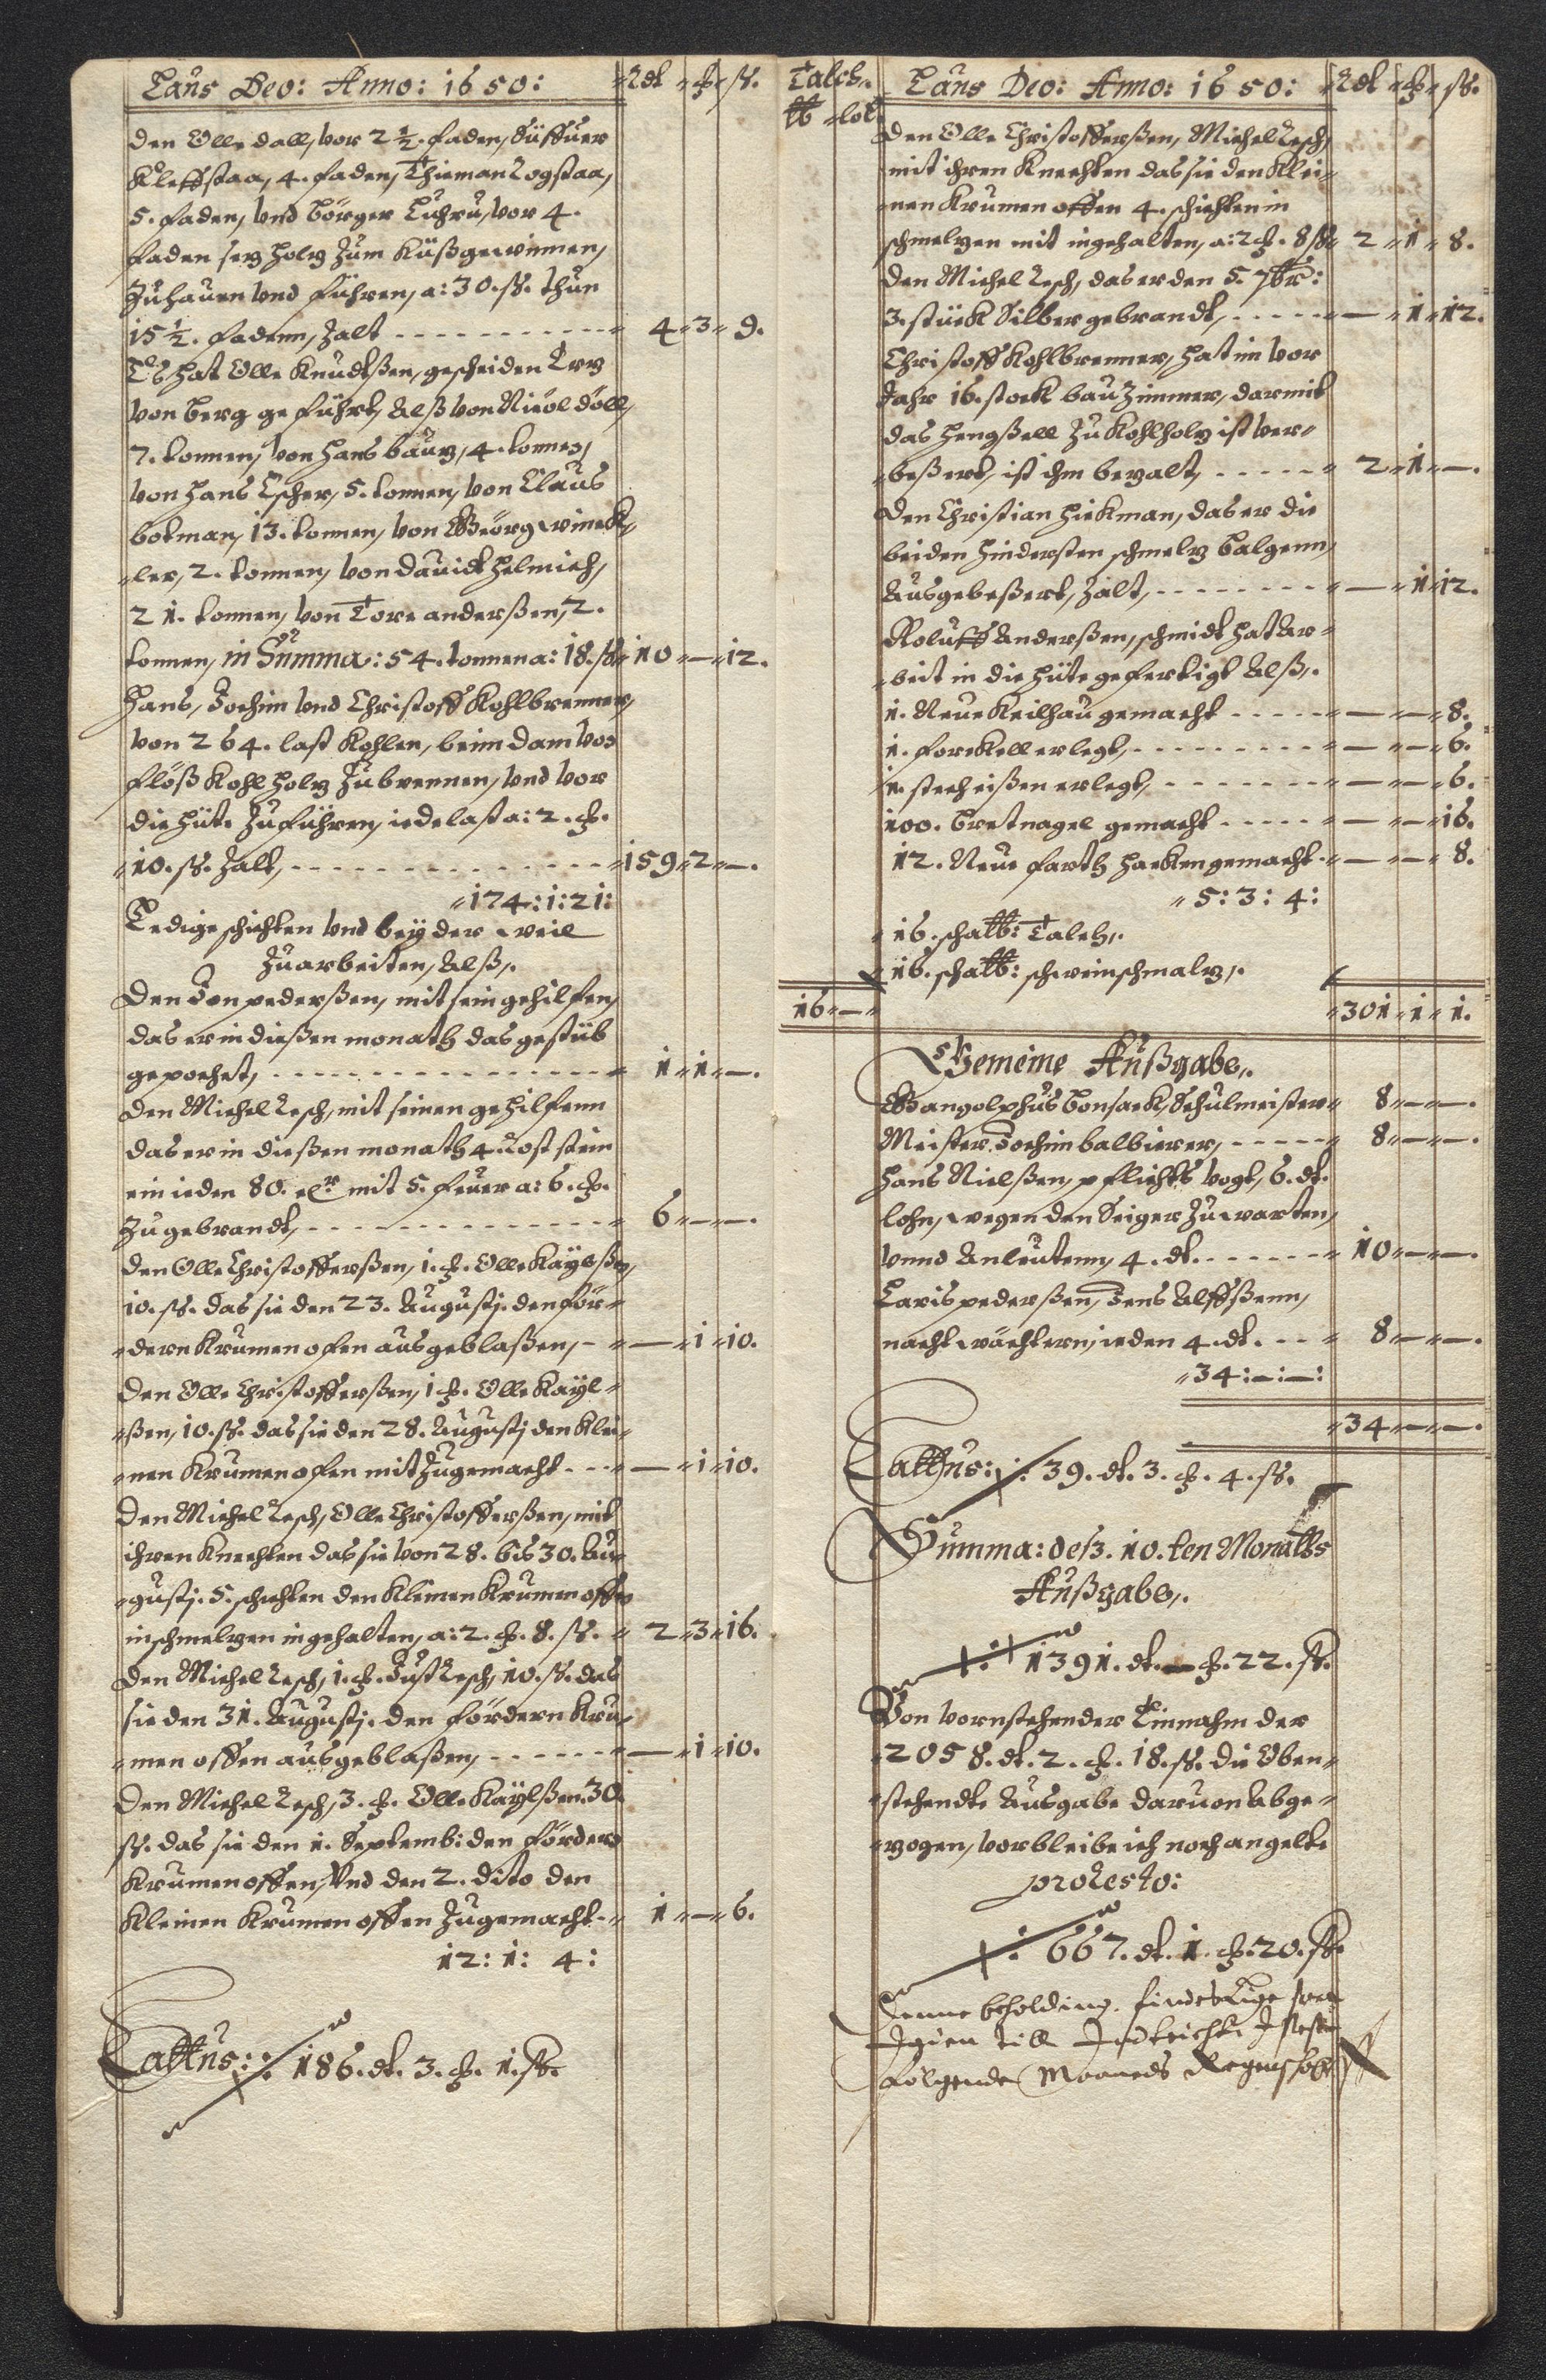 Laus Deo: Anno: 1650: Rdt ₰ ß.
Den Olle dall, vor 2 ½. faden,
Kleffstaa, 4. faden, Thieman Rogstaa,
5. faden, Vnd Börger vor 4.
faden holtz Zum
Zuhauen Vnd führen, a: 30. ß. thun
15 ½. fadenn, Zalt - - - 4 3 9.
Es hat Olle Knudtßen, gescheiden Ertz
von berg geführt, Alß von Nicol döll,
7. tonnen, von Hans 4. tonnen,
von Hans Escher, 5. tonnen, von Claus
botman, 13. tonnen, von Geörg winck
ler, 2. tonnen, von Dauidt Helmich,
21. tonnen, von Tore anderßen, 2.
tonnen, in Summa: 54. tonnen a: 18. ß 10 — 12.
Hans, Jochim Vnd Christoff Kohlbrenner,
von 264. last Kohlen, beim dam von
flöß Kohlholtz Zubrennen, Vnd vor
die Hüt. Zuführen, iede last a: 2. ₰.
10. ß. Zalt, - - - 159 2 —.
174: 1: 21:
Ledigeschichten Vnd beÿ der weil
Zuarbeiten, Alß,.
Den Jon pederßen, mit sein gehilfen,
das er in dießen monath das gestüb
gepochet, - - - 1 1 —.
Den Michel Resch, mit seinen gehilfenn
das er in dießen monath 4. Rost stein
ein ieden 80. mit 5. feuer a: 6. ₰.
Zugebrandt, - - - 6 — —.
Den Olle Christofferßen, 1. ₰. Olle Kaÿlßen,
10. ß. das sie den 23. Augustj. den för
dern Krumenofen ausgeblaßen, - — 1 10.
Den Olle Christofferßen, 1 ₰. Olle Kaÿl
ßen, 10. ß. das sie den 28. Augustj den Klei
nen Krumenofen mit Zugemacht - - — 1 10.
Den Michel Resch, Olle Christofferßen, mit
ihren Knechten das sie von 28. bis 30. Au
gustj. 5. schichten den Kleinen Krumenoffen
in schmeltzen ingehalten, a: 2. ₰. 8. ß. 2 3 16.
Den Michel Resch, 1. ₰. Just Resch, 10. ß. das
sie den 31. Augustj. den fördern Kru
men offen ausgeblaßen, - - - — 1 10.
Den Michel Resch, 3. ₰. Olle Kaÿlßen. 30.
ß. das sie den 1. Septemb: den fördern
Krumenoffen, Vnd den 2. dito den
Kleinen Krumen offen Zugemacht - 1 — 6.
12: 1: 4:
Lattus: 186. dt. 3. ₰. 1. ß.
Talch.
℔ lot
16 —
Laus Deo: Anno: 1650: Rdt ₰ ß.
Den Olle Christofferßen, Michel Resch,
mit ihren Knechten das sie den Klei
nen Krumen offen 4. schichten in
schmeltzen mit ingehalten, a: 2 ₰. 8 ß 2 1 8.
Den Michel Resch, das er den 5. 7br:
3. stück Silber gebrandt, - - - — 1 12.
Christoff Kohlbrenner, hat im vor
Jahr 16. stock bau Zimmer, darmit
das Hengßell Zu Kohlholtz ist ver
beßert, ist ihm bezalt, - - - 2 1 —.
Den Christian Hickman, das er die
beiden Hindersten schmeltz Balgenn,
Ausgebeßert, Zalt, - - - — 1 12.
Roluff Anderßen, schmidt hat Ar
beit in die Hüte gefertigt Alß,.
1. Neue Keilhau gemacht - - - — — 8.
1. forckell erlegt, - - - — — 6.
1. stecheißen erlegt, - - - — — 6.
100. Bretnagel gemacht - - - — — 16.
12. Neue farth Hacken gemacht - — — 8.
5: 3: 4:
16. scha℔: Talch,.
16. scha℔: schweinschmaltz,.
301 1 1.
Gemeine Außgabe,.
Gangolphus Bonsack, Schulmeister 8 — —.
Meister Jochim balbierer, - - - 8 — —.
Hans Nielßen, pflichts Vogt, 6. dt.
lohn, wegen den Seiger Zuwarten,
Vnnd Anleutenn, 4. dt. - - - 10 — —.
Laris pederßen, Jens Alffßenn,
nachtwächtern, ieden 4. dt. - - 8 — —.
34: —: —:
34 — —.
Lattus: 39. dt. 3. ₰. 4. ß.
Summa: deß. 10. ten Monatts
Außgabe,.
1391. dt. — ₰. 22. ß.
Von vornstehender Einnahm der
2058. dt. 2. ₰. 18. ß. die Oben
stehendte Ausgabe daruon Abge
zogen, vorbleibe ich noch an gelte
pro Resto:
667. dt. 1. ₰. 20. ß.
Denne beholding. findes
Igien till
følgende Maaneds Regenskab